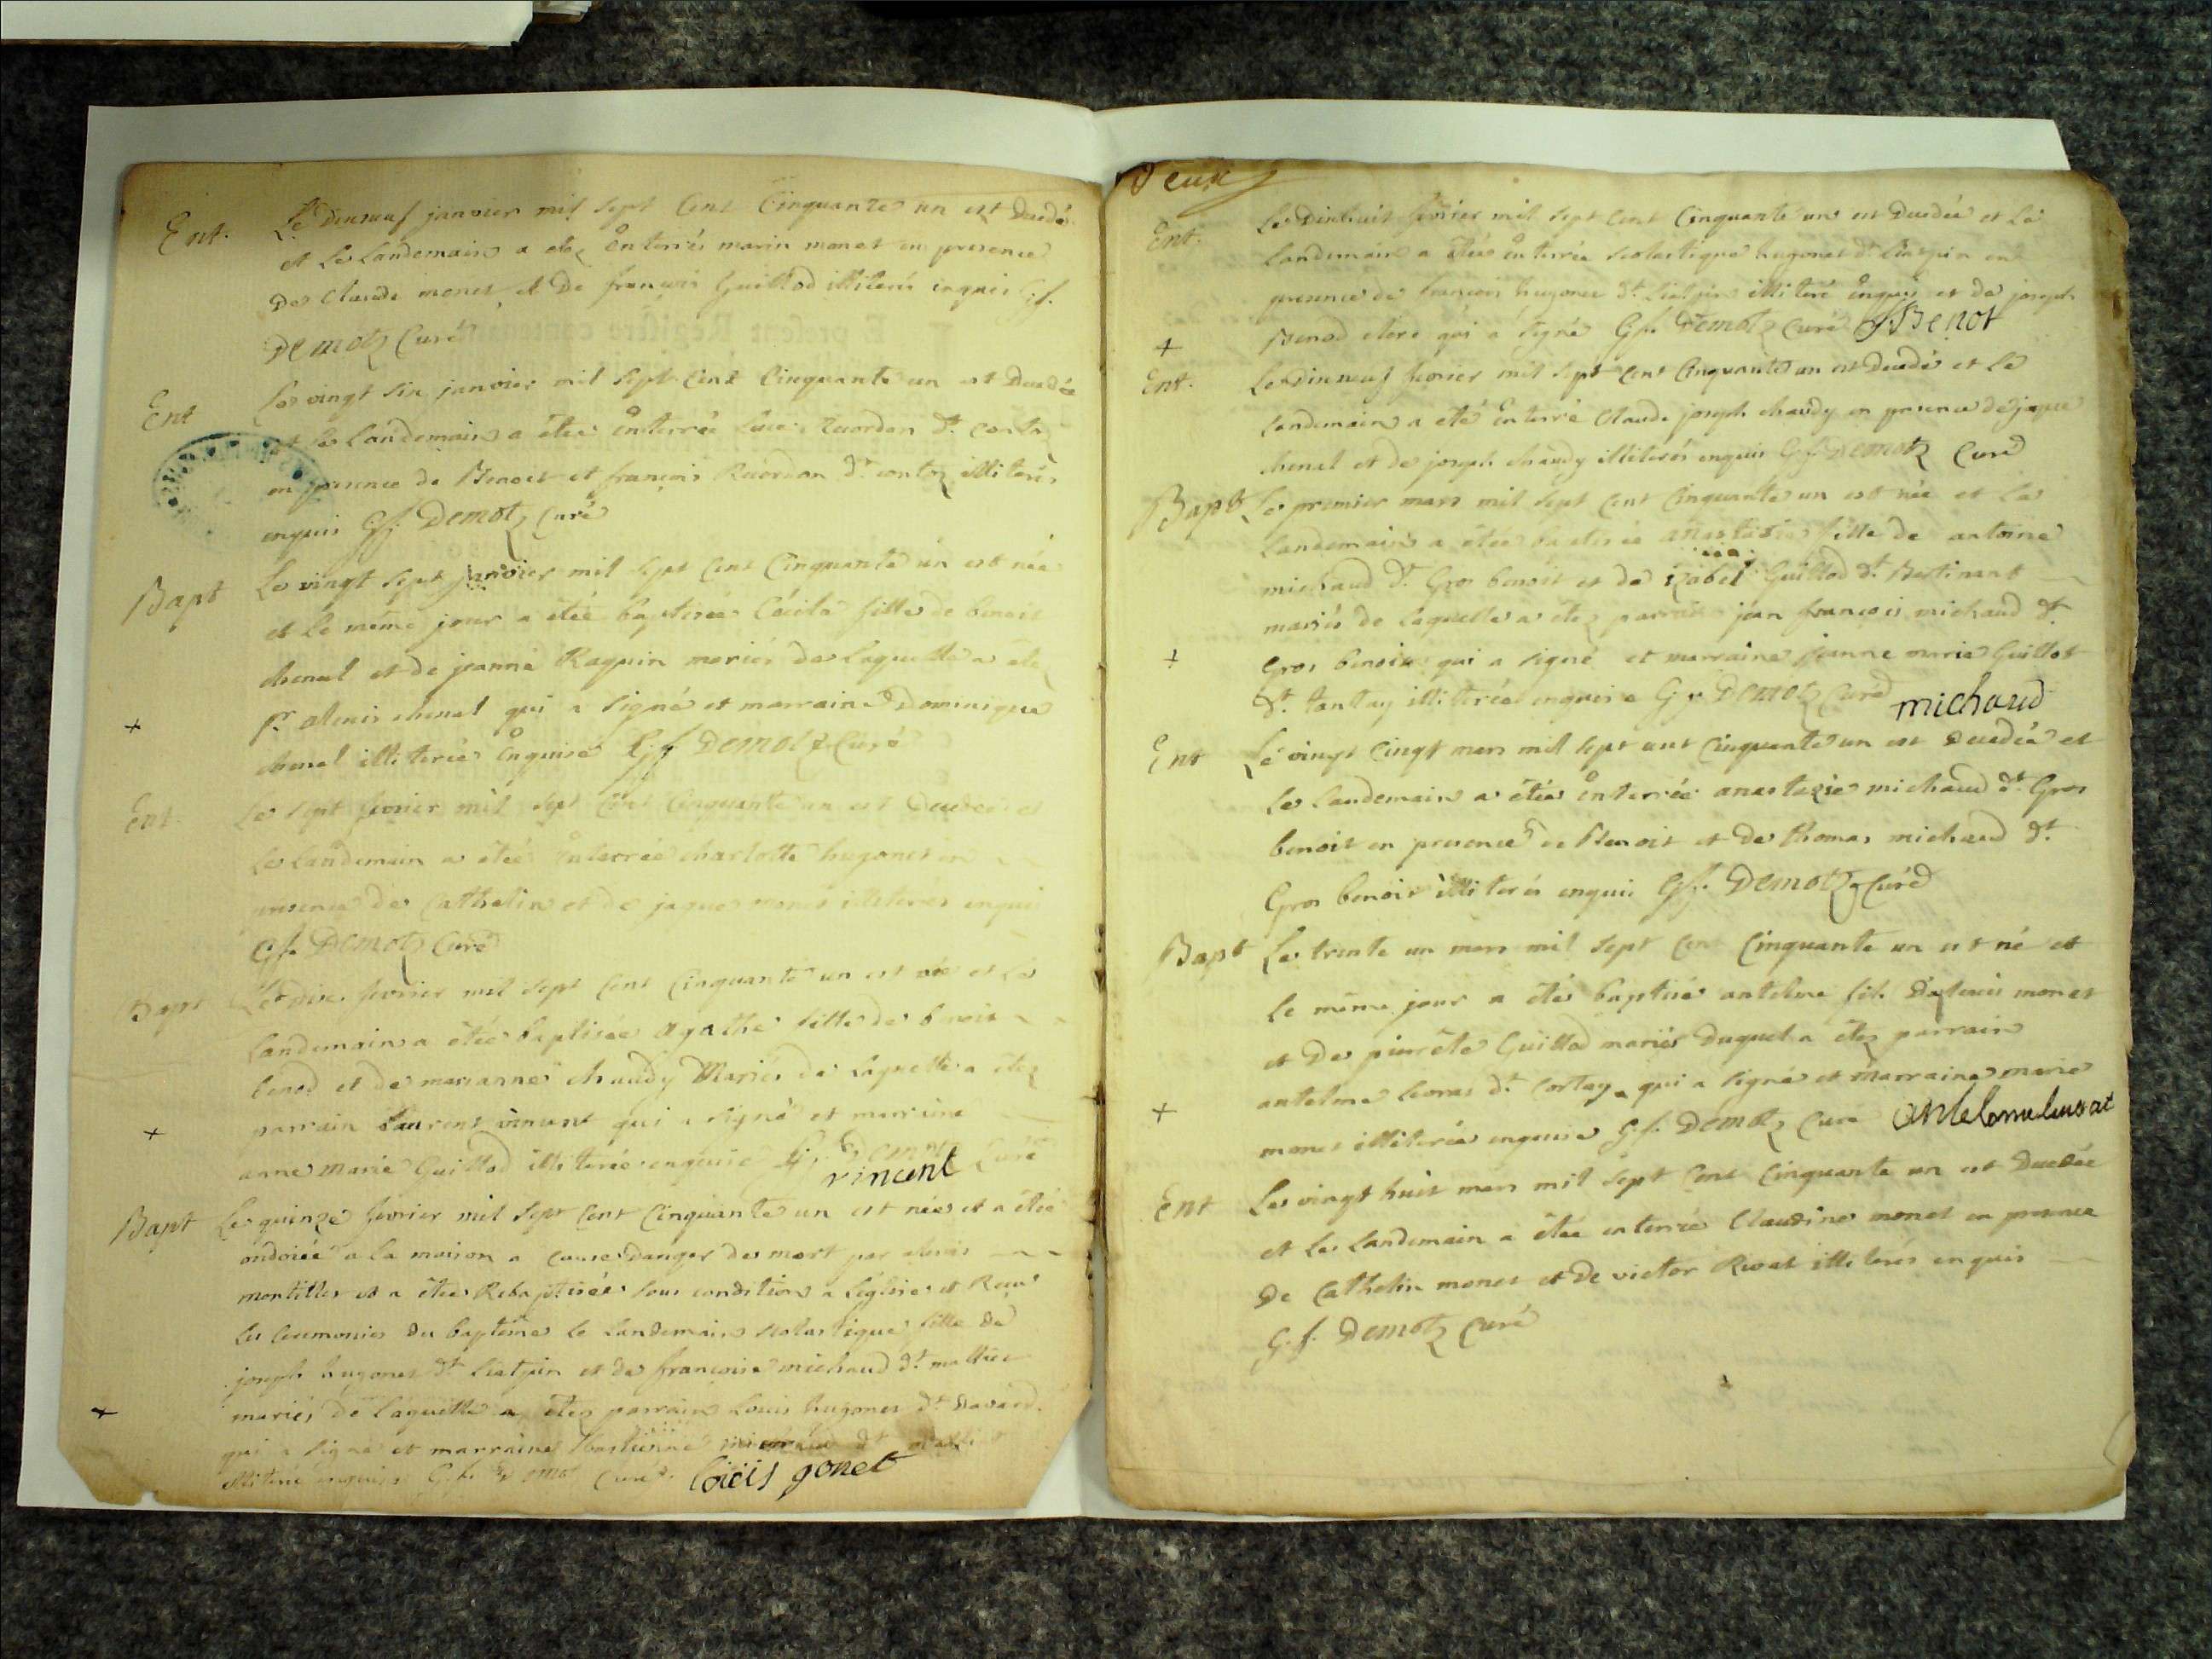 Ent. Le dixneuf janvier mil sept cent cinquante un est decedé
et le landemain a etez enterrés marin monet en presence
de Claude monet et de françois Guillod illiterés enquis G.f.
Demotz Curé
Ent Le vingt six janvier mil sept cent cinquante un est decedée
et le landemain a étée enterrée
en presence de Benoit et françois illiterés
enquis G.f. Demotz Curé
Bapt Le vingt sept janvier mil sept cent cinquante un est née
et le même jour a étée baptisée Cécile fille de benoit
chenel et de jeanne Raquin mariés de laquelle a etez
pr. alexis chenel qui a signé et marraine Dominique
+
chenel illiterée enquise G.f. Demotz Curé
Ent. Le sept fevrier mil sept cent cinquante un est decedée et
le landemain a étée enterrée charlotte hugonet en
presence de Cathelin et de jaque monet illiterés enquis
G.f. Demotz Curé
Bapt Le dix fevrier mil sept cent cinquante un est née et le
landemain a étée baptisée agathe fille de benoit
benod et de marianne chaudy Mariés de laquelle a etez
parrain Laurens vincent qui a signé et marraine
+
anne marie Guillod illiterée enquise G.f. Demotz Curé
vincent
Bapt Le quinze fevrier mil sept cent cinquante un est née et a étée
ondoiée a la maison a cause danger de mort par alexis
montillet et a étée Rebaptisée sous condition a l'église et Reçu
les ceremonies du baptême le landemain scolastique fille de
joseph hugonet dt. liatpin et de françoise michaud dt.
mariés de laquelle a etez parrain Louis hugonet dt.
+
qui a signé et marraine
illiteré enquis G.f. Demotz Curé. loüis gonet
Deux
Ent. Le dixhuit fevrier mil sept cent cinquante un est decedée et le
landemain a étée enterrée scolastique hugonet dt. liatpin en
presence de françois hugonet dt. liatpin illiteré enquis et de joseph
+
Benod clerc qui a signé G.f. Demotz Curé J Benot
Ent. Le dixneuf fevrier mil sept cent cinquante un est decedé et le
landemain a eté enterré Claude joseph chaudy en presence de jaque
chenel et de joseph chaudy illiterés enquis G.f. Demotz Curé
Bapt Le premier mars mil sept cent cinquante un est née et le
landemain a étée baptisée anastasie fille de antoine
michaud dt. Gros benoit et de izabel Guillod dt.
mariés de laquelle a etez parrain jean françois michaud dt.
+
Gros benoit qui a signé et marraine jeanne marie Guillot
dt. tantay illiterée enquise G.f. Demotz Curé michaud
Ent Le vingt cinq mars mil sept cent cinquante un est decedée et
le landemain a étée enterrée anastazie michaud dt. Gros
benoit en presence de Benoit et de thomas michaud dt.
Gros benoit illiterés enquis G.f. Demotz Curé
Bapt Le trente un mars mil sept cent cinquante un est né et
le même jour a été baptisé antelme fils monet
et de pierrete Guillod mariés duquel a etez parrain
antelme dt. cortay qui a signé et marraine marie
+
monet illiterée enquise G.f. Demotz Curé
Ent Le vingt huit mars mil sept cent cinquante un est decedée
et le landemain a étée enterrée Claudine monet en presence
de Cathelin monet et de victor illiterés enquis
G.f. Demotz Curé